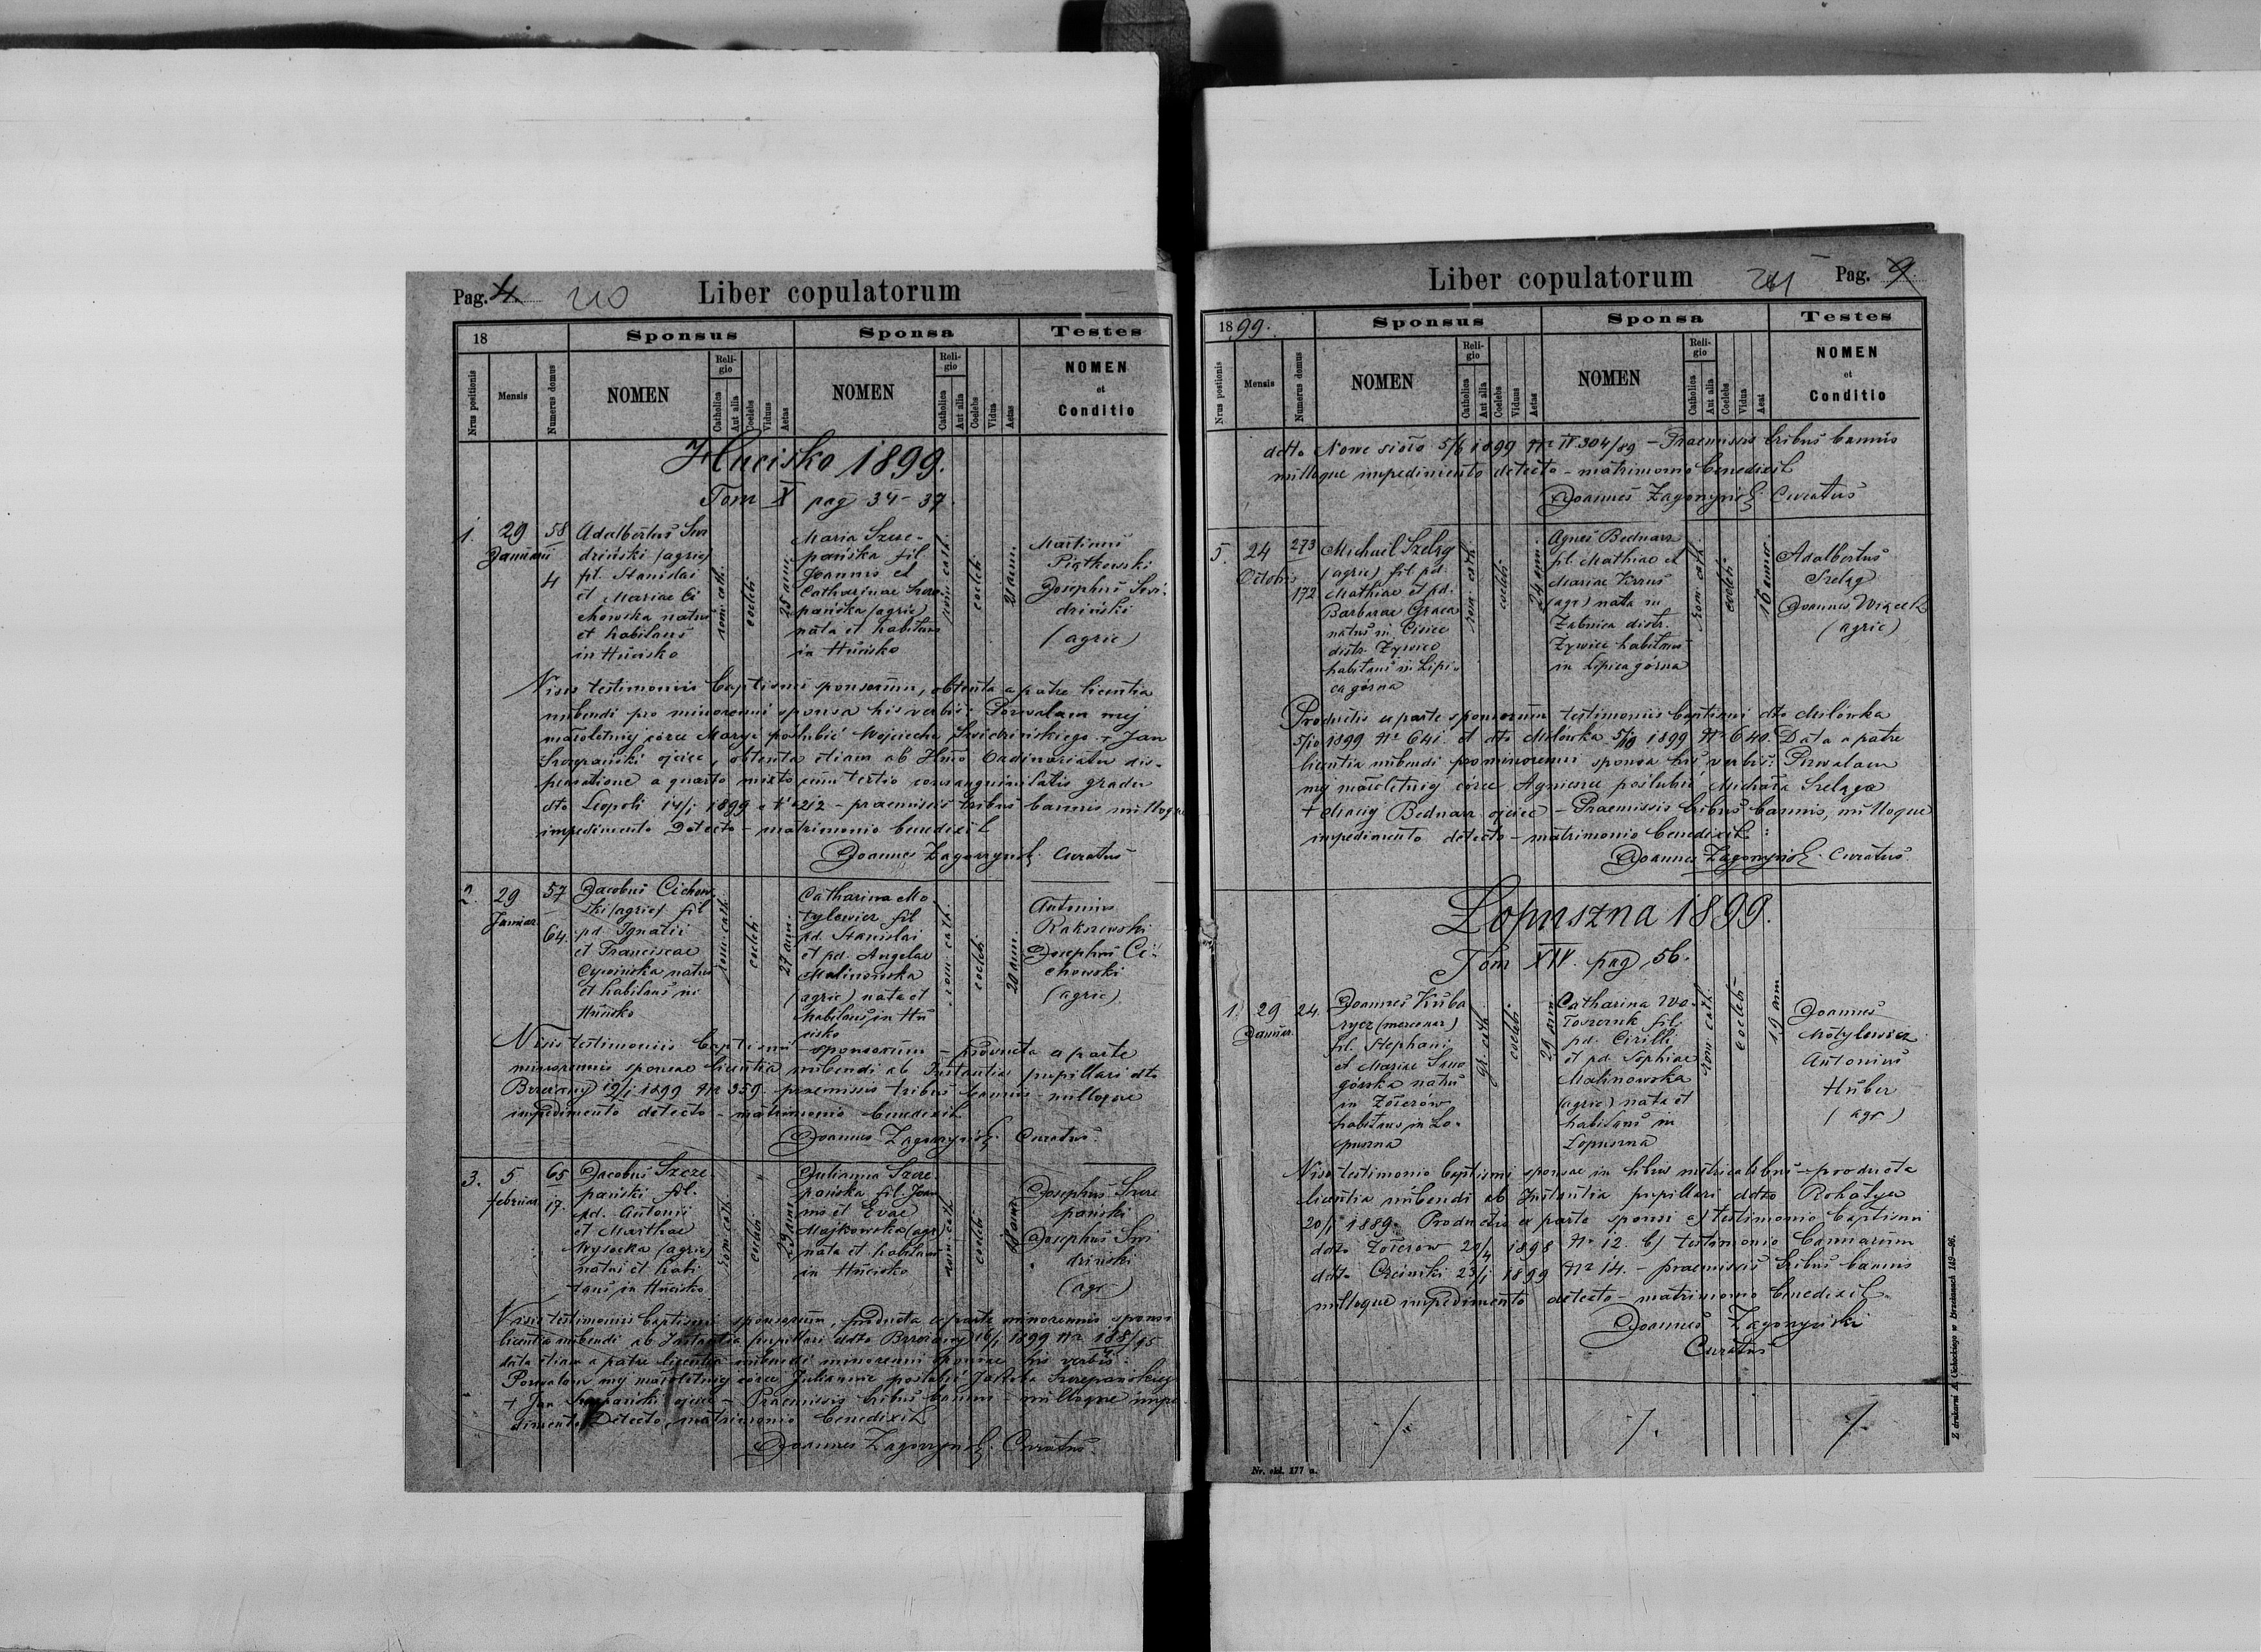 Pag. 4 210 Liber copulatorum
18 Sponsus Sponsa Testes
Nrus positionis Mensis Numerus domus NOMEN Religio Catholica Aut alia Coelebs Viduus Aetas NOMEN Religio Catholica Aut alia Coelebs Vidua Aetas NOMEN et Conditio
Hucisko 1899.
Tom X pag 34-37.
1. 29 Januarii 58 4
Adalbertus Swi
dziński (agric)
fil. Stanislai
et Mariae Ci
chowska natus
et habitans
in Hucisko
rom. cath. coelebs 25 ann.
Maria Szcze-
pańska fil
Joannis et
Catharinae Szcze-
pańska (agric)
nata et habitans
in Hucisko
rom. cath. coelebs 21 ann.
Martinus
Piątkowski
Josephus Swi-
dziński
(agric)
Visis testimoniis baptismi sponsorum, obtenta a patre licentia
nubendi pro minorenni sponsa his verbis: Pozwalam mej
małoletniej córce Maryi poślubić Wojciecha Swidzińskiego + Jan
Szczepański ojciec, obtenta etiam ab Illmo Ordinariatu dis-
pensatione a quarto mixto cum tertio consanguinitatis gradu
dto Leopoli 14/1 1899 N 212 - praemissis tribus bannis nulloque
impedimento detecto - matrimonio benedixit
Joannes Zagorzyński Curatus
2. 29 Januar 57 64.
Jacobus Cichow
ski (agric) fil
pd. Ignatii
et Franciscae
Cywińska natus
et habitans in
Hucisko
rom. cath. coelebs 27 ann.
Catharina Mo
tylewicz fil
pd. Stanislai
et pd. Angelae
Malinowska
(agric) nata et
habitans in Hu
cisko
rom. cath. coelebs 20 ann.
Antonius
Rakszewski
Josephus Ci-
chowski
(agric)
Visis testimoniis baptismi sponsorum - producta a parte
minorennis sponsae licentia nubendi ab Instantia pupillari dto
Brzeżany 12/1 1899 Nr 359 - praemissis tribus bannis - nulloque
impedimento detecto - matrimonio benedixit
Joannes Zagorzyński Curatus.
3. 5 Februar 65 17.
Jacobus Szcze
pański fil.
pd. Antonii
et Marthae
Wysocka (agric)
natus et habi
tans in Hucisko
rom. cath. coelebs 23 ann.
Julianna Szcze
pańska fil. Joan
nis et Evae
Majkowska (agr)
nata et habitans
in Hucisko
rom. cath. coelebs
Josephus Szcze
pański
Josephus Swi
dziński
(agr)
Visis testimoniis baptismi sponsorum, producta a parte minorennis sponsi
licentia nubendi ab Instantia pupillari ddto Brzeżany 16/1 1899 Nr 188/95
data etiam a patre licentia nubendi minorenni sponsae his verbis:
Pozwalam mej małoletniej córce Juliannie poślubić Jakóba Szczepańskiego
+ Jan Szczepański ojciec - Praemissis tribus bannis - nulloque impe
dimento detecto, matrimonio benedixit
Joannes Zagorzyński Curatus.
Liber copulatorum 211 Pag. 9
1899. Sponsus Sponsa Testes
Nrus positionis Mensis Numerus domus NOMEN Religio Catholica Aut alia Coelebs Viduus Aetas NOMEN Religio Catholica Aut alia Coelebs Vidua Aeat NOMEN et Conditio
ddto Nowe sioło 5/6 1899 Nr IV 304/89 - Praemissis tribus bannis
nulloque impedimento detecto - matrimonio benedixit
Joannes Zagorzyński Curatus
5. 24 Octobris 273 172
Michael Szeląg
(agric) fil. pd.
Mathiae et pd.
Barbarae Graca
natus in Cisiec
distr. Żywiec
habitans in Lipi-
ca górna
rom. cath. coelebs 24 ann.
Agnes Bednarz
fil. Mathiae et
Mariae
(agr) nata in
Żabnica distr.
Żywiec habitans
in Lipica górna
rom. cath. coelebs 16 annor.
Adalbertus
Szeląg
Joannes Wiącek
(agric)
Productis a parte sponsorum testimoniis baptismi dto Milówka
5/10 1899 Nr 641. et dto Milówka 5/10 1899 Nr 640. Data a patre
licentia nubendi pro minorenni sponsa his verbis: Pozwalam
mej małoletniej córce Agniesce poślubić Michała Szeląga
+ Maciej Bednarz ojciec - Praemissis tribus bannis, nulloque
impedimento detecto - matrimonio benedixit:
Joannes Zagorzyński Curatus.
Lopuszna 1899.
Tom XIV. pag. 56.
1. 29 Januar. 24.
Joannes Kuba
rycz (mercenar)
fil. Stephani
et Mariae Smo
górska natus
in Żołczów
habitans in Lo-
puszna
gr. cath. coelebs 29 ann.
Catharina Wo-
łoszczuk fil.
pd. Cirilli
et pd. Sophiae
Malinowska
(agric) nata et
habitans in
Lopuszna
rom cath. coelebs 19 ann
Joannes
Motylewicz
Antonius
Huber
(agr)
Viso testimonio baptismi sponsae in libris metricalibus - producta
licentia nubendi ab Instantia pupillari ddto Rohatyn
20/1 1889. Productis ex parte sponsi a) testimonio baptismi
ddto Żołczów 20/4 1898 Nr 12. b) testimonio bannorum
ddto 23/1 1899 Nr 14. - praemissis tribus bannis
nulloque impedimento detecto - matrimonio benedixit.
Joannes Zagorzyński
Curatus
Nr. skl. 177 a.